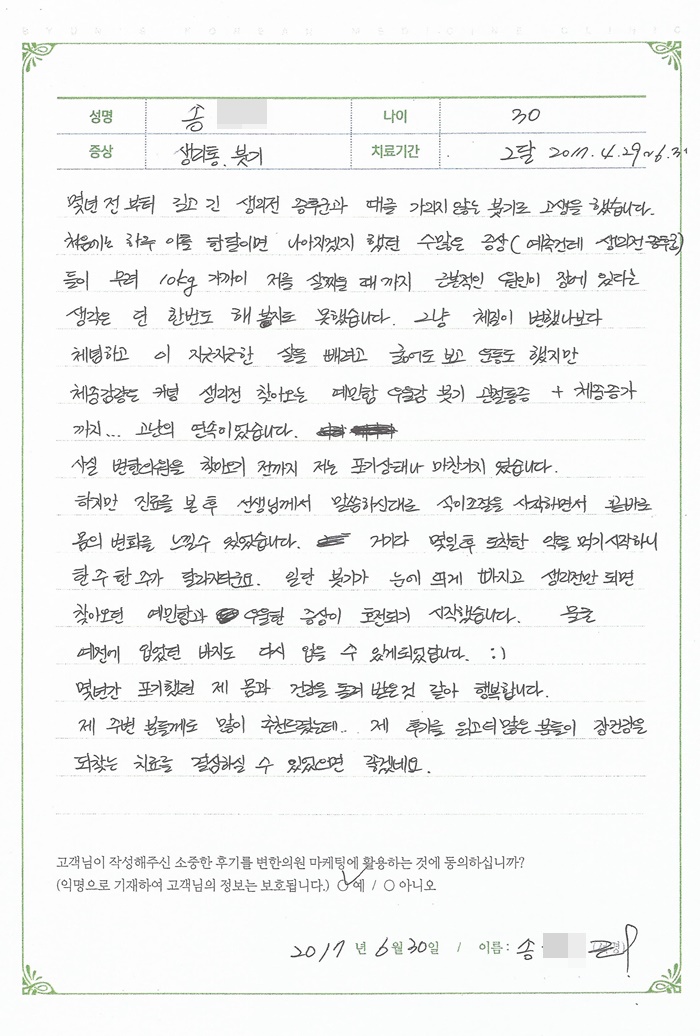 BYUN'S KOREAN MEDICINE CLINIC
성명 송 나이 30
증상 생리통, 붓기 치료기간 2달 2017.4.29~6.3
몇년 전 부터 길고 긴 생리전 증후군과 때를 가리지 않는 붓기로 고생을 했습니다.
처음에는 하루 이틀 한달이면 나아지겠지 했던 수많은 증상(예측컨데 생리전증후군)
들이 무려 10kg 가까이 저를 살찌울 때까지 근본적인 원인이 장에 있다는
생각은 단 한번도 해 보지도 못했습니다. 그냥 체질이 변했나보다
체념하고 이 지긋지긋한 살을 빼려고 굶어도 보고 운동도 했지만
체중감량은 커녕 생리전 찾아오는 예민함 우울감 붓기 근골통증 + 체중증가
까지... 고난의 연속이었습니다.
사실 변한의원을 찾아오기 전까지 저는 포기상태나 마찬가지 였습니다.
하지만 진료를 본 후 선생님께서 말씀하신대로 식이조절을 시작하면서 곧바로
몸의 변화를 느낄수 있었습니다. 거기다 몇일후 도착한 약을 먹기 시작하니
한 주 한 주가 달라지더라구요. 일단 붓기가 눈에 띄게 빠지고 생리전만 되면
찾아오던 예민함과 우울한 증상이 호전되기 시작했습니다. 물론
예전에 입었던 바지도 다시 입을 수 있게되었답니다. :)
몇년간 포기했던 제 몸과 건강을 돌려 받은것 같아 행복합니다.
제 주변 분들께도 많이 추천드렸는데.. 제 후기를 읽고 더 많은 분들이 장건강을
되찾는 치료를 결심하실 수 있었으면 좋겠네요.
고객님이 작성해주신 소중한 후기를 변한의원 마케팅에 활용하는 것에 동의하십니까?
(익명으로 기재하여 고객님의 정보는 보호됩니다.) ○ 예 / ○ 아니오
2017 년 6 월 30 일 / 이름 : 송 (서명)